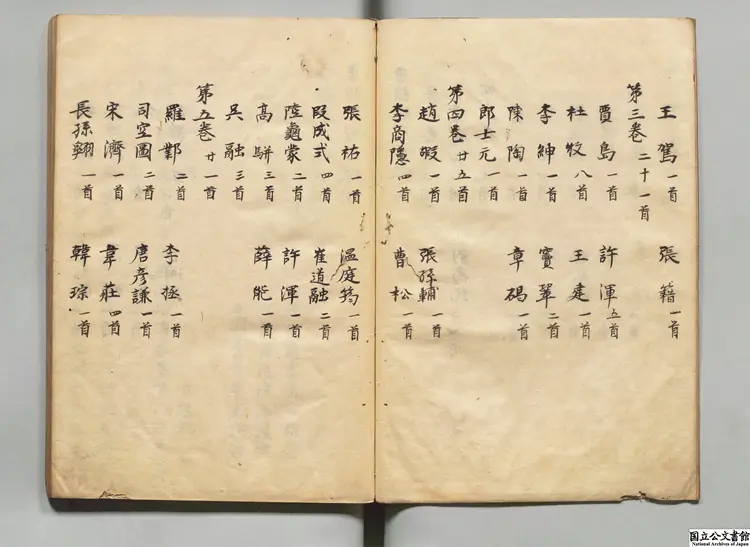 王駕 一首 張籍 一首
第三巻 二十一首
賈島 一首 許渾 五首
杜牧 八首 王建 一首
李紳 一首 竇鞏 二首
陳陶 一首 章碣 一首
郎士元 一首
第四巻 廿五首
趙嘏 一首 張孫輔 一首
李商隠 四首 曹松 一首
張祐 一首 温庭筠 一首
段成式 四首 崔道融 二首
陸龜蒙 二首 許渾 一首
高駢 三首 薛能 一首
呉融 三首
第五巻 廿一首
羅鄴 二首 李拯 一首
司空圖 二首 唐彦謙 一首
宋濟 一首 韋莊 四首
長孫翱 一首 韓琮 一首
国立公文書館
National Archives of Japan